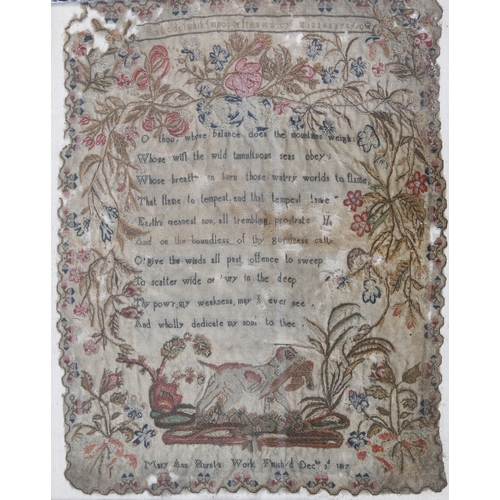 O thou, whose balance does the mountains weigh
Whose will the wild tumultuous seas obey
Whose breath can turn those wat'ry worlds to flame,
That flame to tempest, and that tempest tame
Earth's meanest son, all trembling, prostrate
And on the boundless of thy goodness calls
O! give the winds all past offence to sweep
To scatter wide or bury in the deep
Thy pow'r, my weakness, may I ever see
And wholly dedicate my soul to thee
Mary Ann Work Finish'd Decr